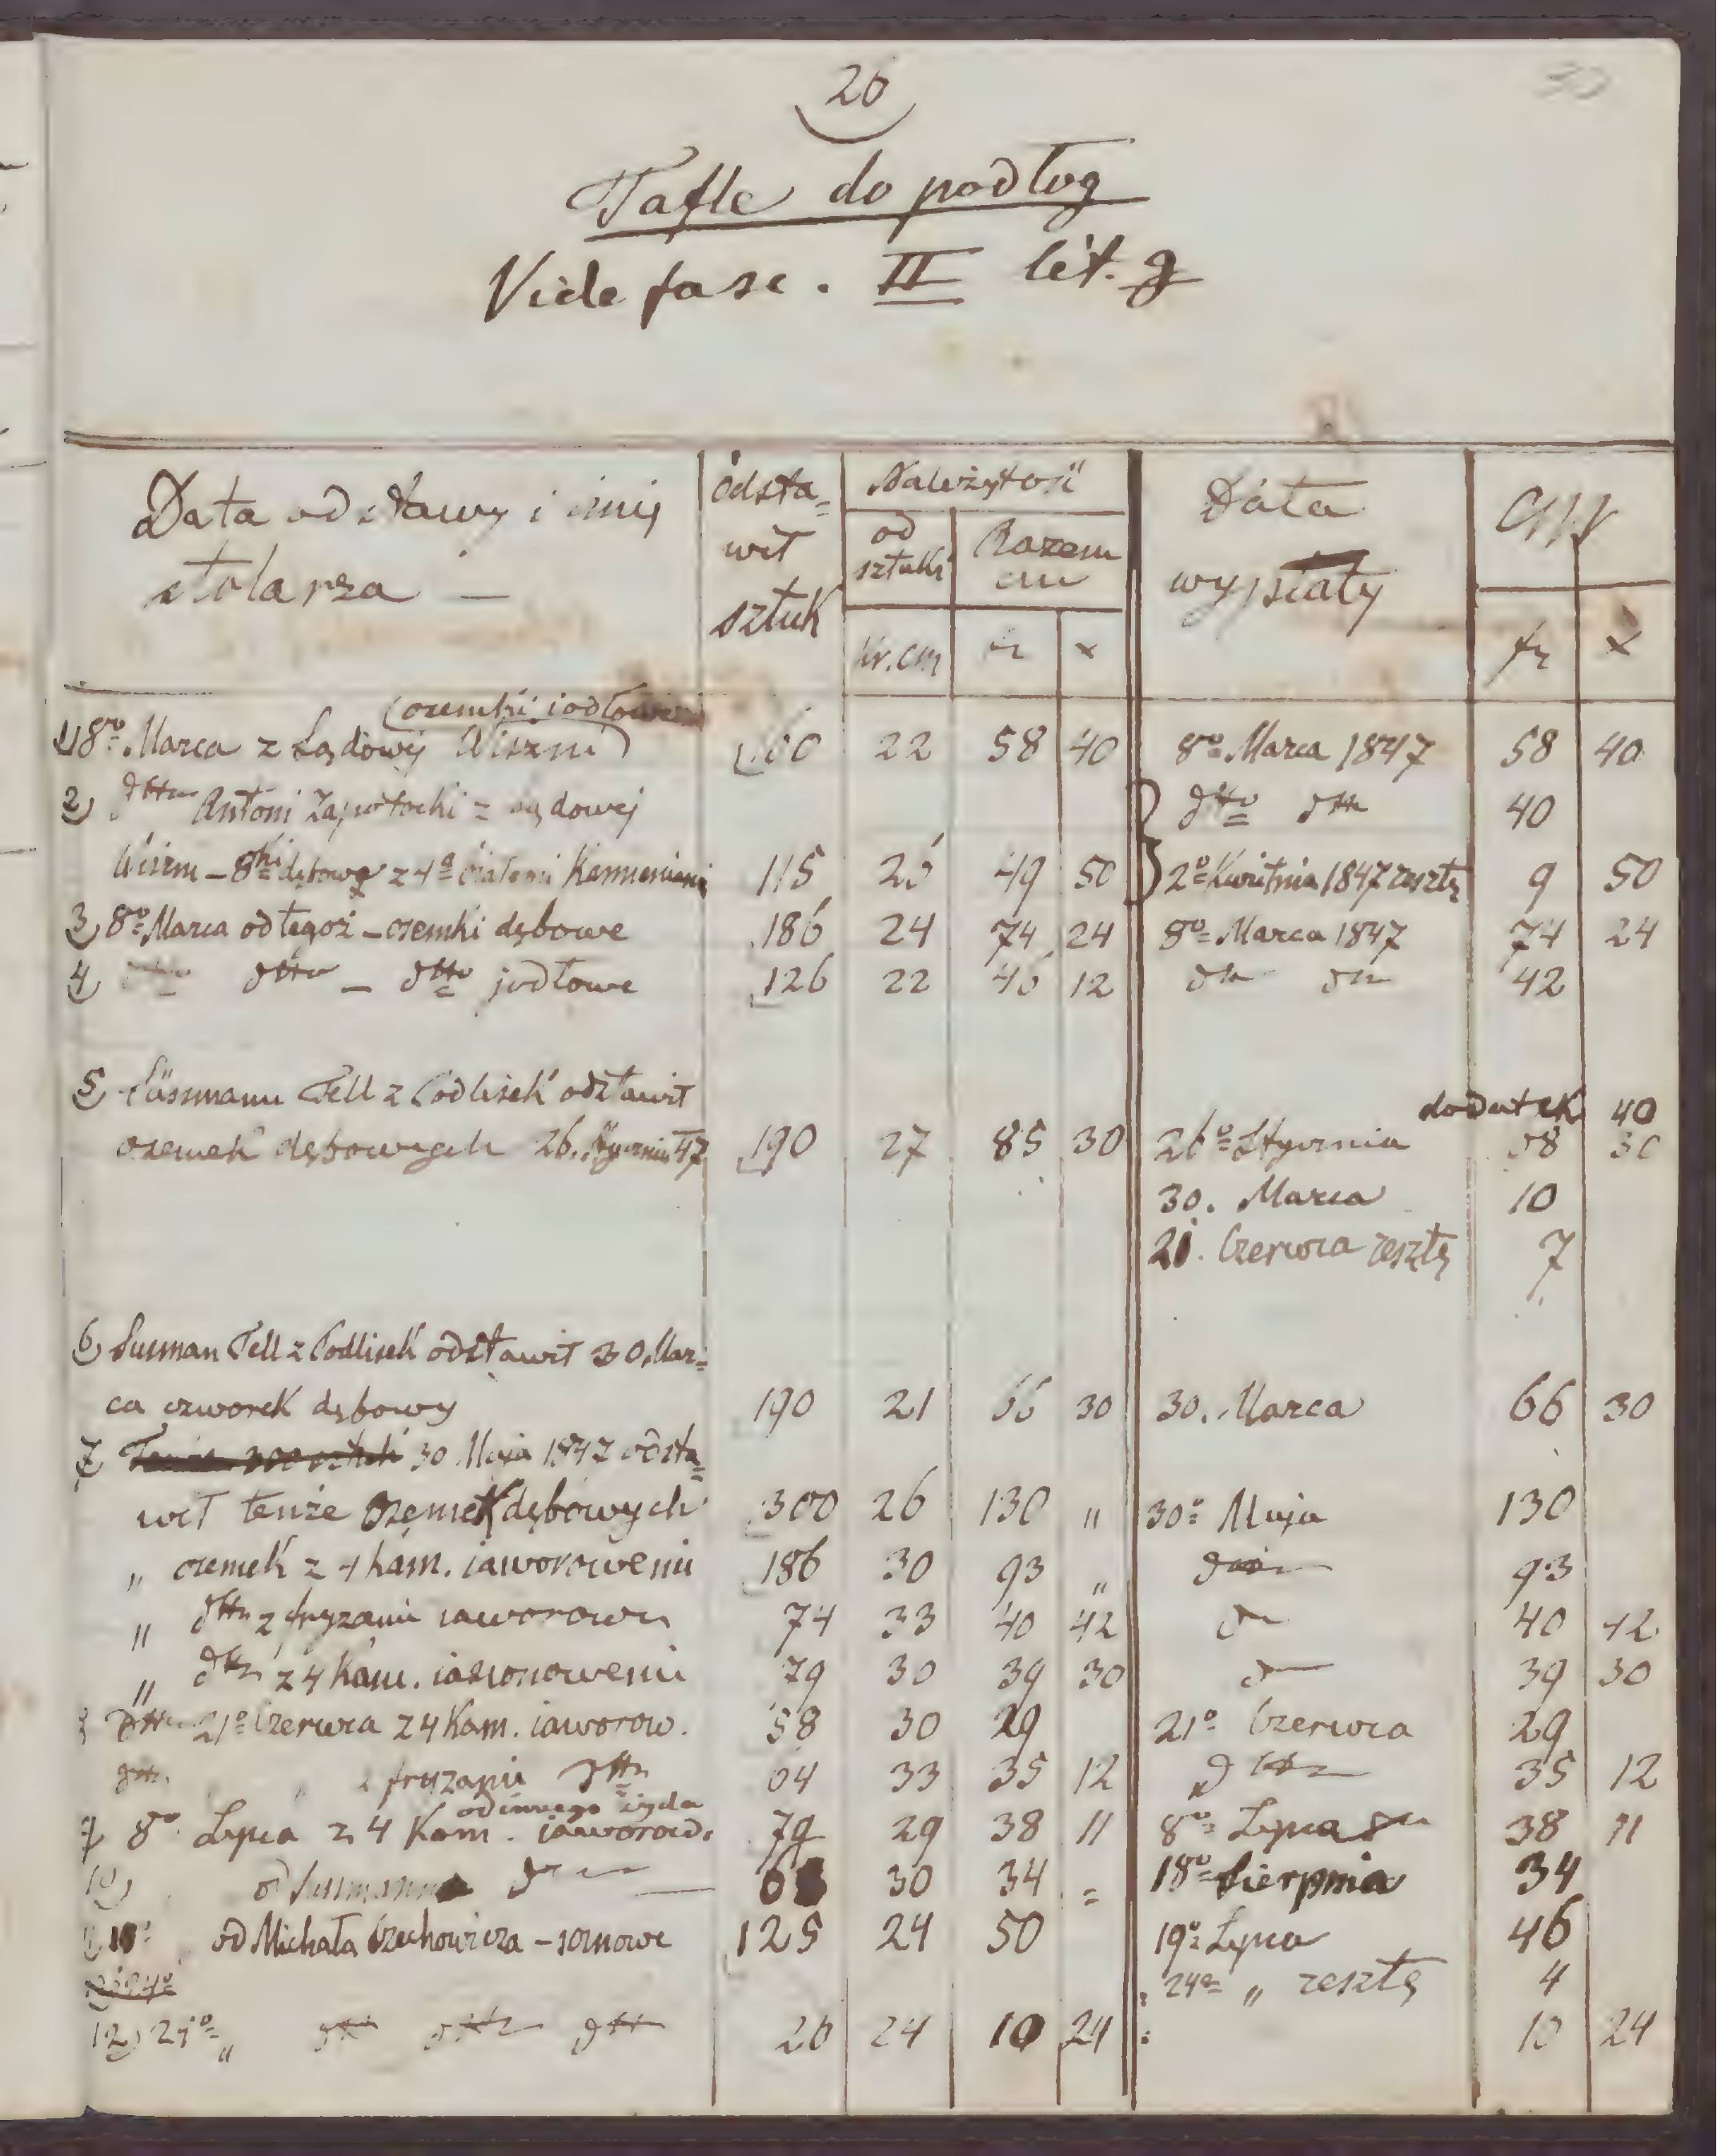 26
Tafle do podłog
Vide fasc. II lit. g
Data odstawy i imię stolarza —
odstawił sztuk
Należytość
od sztuki
Razem cm
Kr. cm
fr x
Data wypłaty
CM
fr x
(osemki jodłowe)
1) 8º Marca z Sądowej Wiszni 160 22 58 40 8º Marca 1847 58 40
2) dtto Antoni Zapotocki z Sądowej dtto dtto 40
Wiszni – 8ki dębowe z 4ª białemi Kamieniami 115 26 49 50 2º Kwietnia 1847 resztę 9 50
3) 8º Marca od tegoż – osemki dębowe 186 24 74 24 8º Marca 1847 74 24
4) dtto dtto – dtto jodłowe 126 22 46 12 dtto dtto 42
5) Süssmann Tell z Podlisek odstawił dodatek 40
osemek dębowych 26. Stycznia 47 190 27 85 30 26º Stycznia 68 30
30. Marca 10
21. Czerwca resztę 7
6) Susman Tell z Podlisek odstawił 30 Mar=
ca czworek dębowy 190 21 66 30 30. Marca 66 30
7) 30 Maja 1847 odsta=
wił tenże Osemek dębowych 300 26 130 " 30º Maja 130
" osemek z 4 kam. jaworowemi 186 30 93 " dtto 93
" dtto z fryzami jaworowemi 74 33 40 42 dtto 40 42
" dtto z 4 Kam. jasionowemi 79 30 39 30 dtto 39 30
dtto 21º Czerwca z 4 Kam. jaworow. 58 30 29 21º Czerwca 29
dtto " z fryzami dtto 64 33 35 12 " dtto 35 12
od innego żyda
8º Lipca z 4 Kam. jaworow. 79 29 38 11 8º Lipca 38 11
10) od Sussmanna dtto — 68 30 34 = 18º Sierpnia 34
11) 18º od Michała Czechowicza – sosnowe 125 24 50 19º Lipca 46
24º " resztę 4
12) 24º " dtto dtto dtto 26 24 10 24 10 24